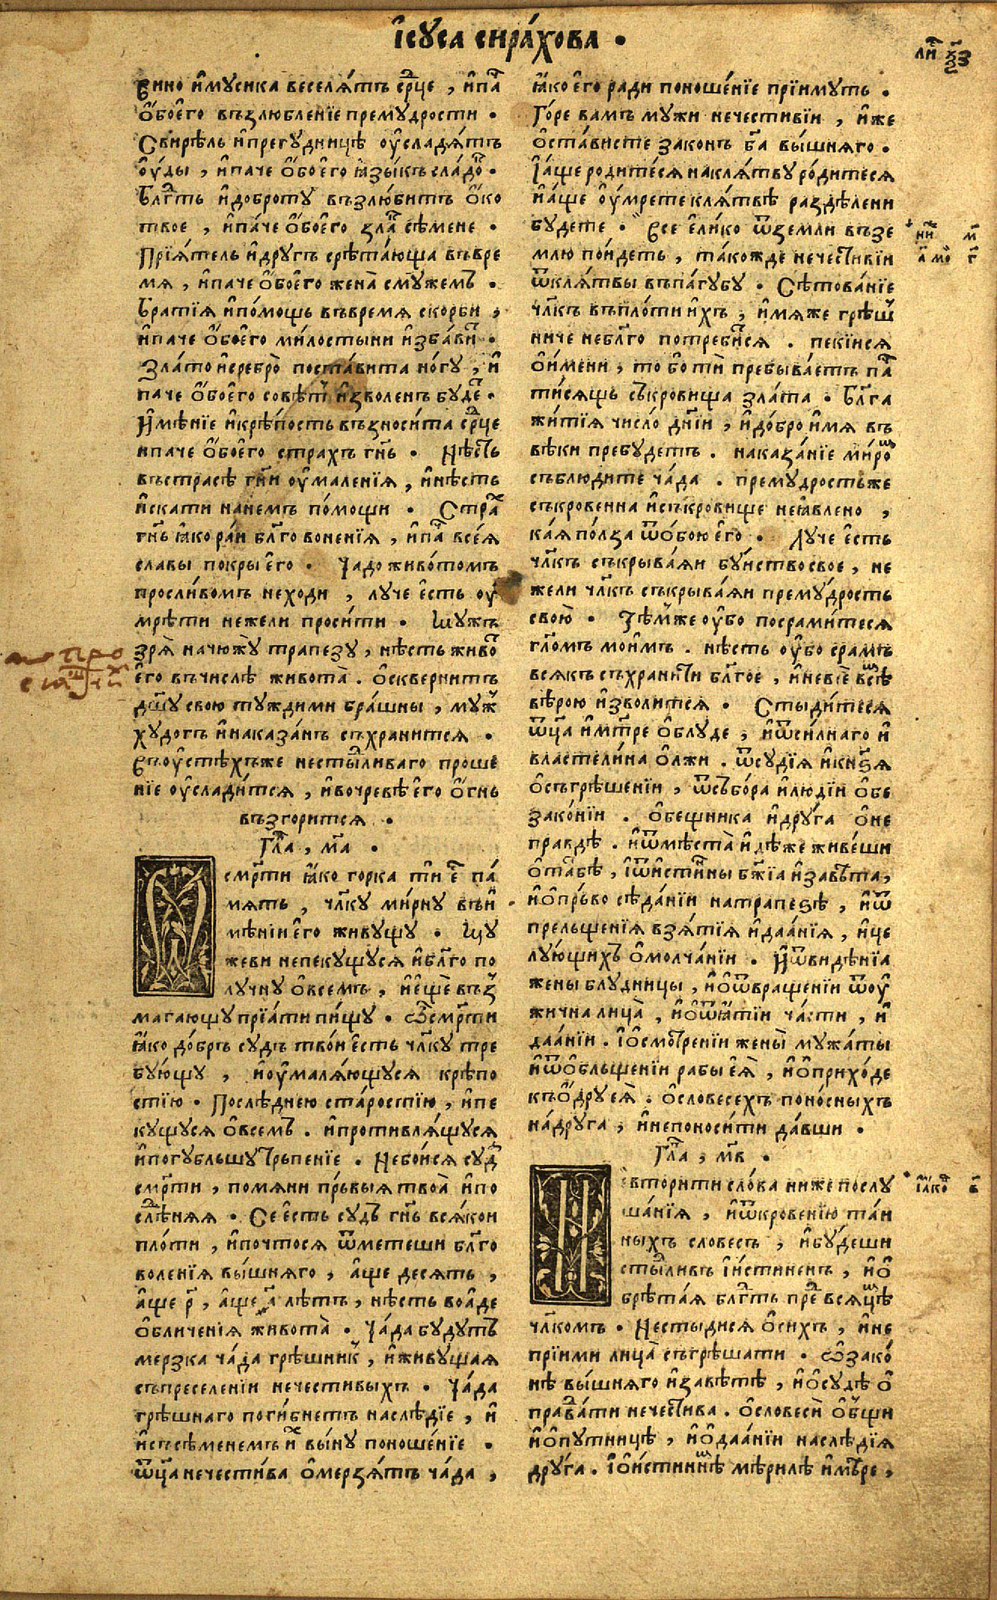 І҆сꙋса сира́хова •
ли҃ т҃ѯз
Вино и҆мꙋсика веселѧ́тъ ср҃це , и҆па
ѻ҆боего̀ въꙁлюбленїе премꙋдрости •
Свирѣ́ль и҆прегꙋдницѣ оу҆сладѧ́тъ
оу҆ды , и҆паче ѻ҆бое҆го ꙗ҆ꙁы́къ сладо •
Бл҃гть и҆добротꙋ въꙁлюбитъ ѻ҆ко
твое , и҆па́че ѻ҆бое҆го ꙁла сѣ́мене •
Прїѧ́тель и҆дрꙋгъ срѣта́юща въвре
мѧ , и҆паче ѻ҆бое҆го жена̀ смꙋжемъ •
Братїѧ и҆по́мощь въвремѧ скорби ,
и҆паче ѻ҆бое҆го ми́лостыни и҆ꙁба́ви •
Ꙁла́то и҆сребро̀ поста́вита но́гꙋ , и҆
паче ѻ҆бое҆го совѣ́т и҆ꙁволенъ бꙋде •
И҆мѣ́нїе и҆крѣ́пость въꙁно́сита ср҃це
и҆паче ѻ҆бое҆го страхъ гн҃ь • Нѣ́сть
въстрасѣ гн҃и оу҆маленїѧ , и҆нѣсть
и҆скати нане́мъ по́мощи • Страⷯ
гн҃ь ꙗ҆ко ра́и бл҃го воненїѧ , и҆па все́ѧ
славы покры е҆го̀ • Ча́до живо́томъ
просли́вомъ неходи , лꙋче е҆сть оу҆
мрѣти нежели проси́ти • Мꙋжъ
ꙁрѧ̀ начю́жꙋ трапеꙁꙋ , нѣсть живо
е҆го въчислѣ живота̀ . ѻ҆сквернитъ
дш҃ꙋ свою тꙋждими бра́шны , мꙋж
хꙋдогъ и҆накаꙁа́нъ съхранитсѧ •
Въоу҆стѣ́хъже нестыли́ваго проше
нїе оу҆слади́тсѧ , и҆вочревѣ е҆го ѻ҆гнь
въꙁгоритсѧ •
Гла , м҃а •
смр҃ти ꙗ҆ко горка ти е҆ па́
мѧть , чл҃кꙋ ми́рнꙋ въи҆
мѣ́нїи е҆го живꙋщꙋ • Мꙋ
жеви непекꙋщꙋсѧ и҆бл҃го по
лꙋчнꙋ ѻ҆всемъ , и҆еще въꙁ
магающꙋ прїа́ти пи́щꙋ • Ѽсмр҃ти
ꙗ҆ко до́бръ сꙋдъ тво́и е҆сть чл҃кꙋ тре
бꙋ́ющꙋ , и҆оу҆малѧ́ющꙋсѧ крѣпо
стїю • Послѣднею ста́ростїю , и҆пе
кꙋщꙋсѧ ѻ҆всемъ . и҆противлѧ́щꙋсѧ
и҆погꙋбльшꙋ трьпенїе • Небо́исѧ сꙋд
смр҃ти , помѧни прьвыѧ твоа̀ и҆по
слѣ́днѧѧ • Се е҆сть сꙋдъ гн҃ь всѧ́кои
пло́ти , и҆почтосѧ ѿметеши бл҃го
воленїѧ вы́шнѧго , а҆ще десѧть ,
а҆ще р҃ , а҆ще а҃ лѣтъ , нѣсть воа҆де
ѻ҆бличенїѧ живота̀ • Ча́да бꙋдꙋтъ
мерꙁка ча́да грѣшник , и҆живꙋщаѧ
съпреселенїи нечестивыхъ • Ча́да
грѣшнаго поги́бнетъ наслѣ́дїе , и҆
и҆съсѣменемъ и҆ вы́нꙋ поноше́нїе •
ѿц҃а нечести́ва ѻ҆мерꙁѧ́тъ ча́да ,
ꙗ҆ко е҆го ради поноше́нїе прїи́мꙋть •
Го́ре вамъ мꙋжи нечестивїи , и҆же
ѻ҆ста́висте ꙁаконъ б҃а вы́шнѧго •
І҆а҆ще роди́тесѧ наклѧ́твꙋ ро́дитесѧ
и҆а҆ще оу҆мрете клѧ́твѣ раꙁдѣлени
бꙋдете • Все е҆ли́ко ѿꙁемли въꙁе
млю по́идеть , та́кожде нечести́вїи
ѿклѧ́твы въпа́гꙋбꙋ • Сѣ́това́нїе
чл҃къ въпло́ти и҆хъ , и҆мѧже грѣш
ниче небл҃го потреби́сѧ . пекїисѧ
ѻ҆и҆мени , то бо ти пребыва́етъ па
ти́сѧщь съ́кровища ꙁлата • Бл҃га
жи́тїѧ число дн҃їи , и҆до́бро и҆мѧ въ
вѣ́ки пребꙋдетъ . накаꙁа́нїе ми́ро
съблюдите ча́да . премꙋдростьже
съкровенна и҆съкровище неꙗ҆влено ,
ка́ѧ по́лꙁа ѿѻ҆бою е҆го • Лꙋче е҆сть
чл҃къ съкрыва́ѧи бꙋиство свое , не
жели чл҃къ съкрыва́ѧи премꙋ́дрость
свою̀ • Тѣмже оу҆бо посрами́тесѧ
гл҃омъ мои́мъ . нѣсть оу҆бо срамъ
всѧкъ съхрани́ти бл҃гое , и҆невсѣ все
вѣ́рою и҆ꙁволитсѧ • Стыди́тесѧ
ѿц҃а и҆мт҃ре ѻ҆блꙋде , и҆ѿси́лнаго и҆
власте́лина ѻ҆лжи . ѿсꙋдїѧ и҆кнѧ́ꙁѧ
ѻ҆съгрѣше́нїи , ѿсъбо́ра и҆лю́дїи ѻ҆бе
ꙁако́нїи . ѻ҆бещника и҆дрꙋга ѻ҆не
правдѣ . и҆ѿмѣста̀ и҆дѣже живе́ши
ѻ҆та́бѣ , і҆ѿи́стины бж҃їа и҆ꙁавѣ́та ,
и҆ѻ҆прьво сѣда́нїи натрапеꙁѣ , и҆ѿ
прельщенїѧ вꙁѧ́тїѧ и҆даа́нїѧ , и҆це
лꙋющихъ ѻ҆молча́нїи • И҆ѿви́дѣнїа
жены блꙋдницы , и҆ѿвраще́нїи ѿоу҆
жична лица̀ , и҆ѿꙗ҆тїи ча́сти , и҆
даа́нїи . І҆ѻ҆смотре́нїи жены̀ мꙋжаты
и҆ѿѻ҆блыще́нїи рабы е҆ѧ̀ , и҆ѻ҆прихо́де
къѻ҆дрꙋ е҆ѧ . ѻ҆словесехъ поно́сныхъ
на́дрꙋга , и҆непоноси́ти да́вши .
Гла , м҃в •
Не втори́ти сло́ва ни́же послꙋ
ша́нїѧ , и҆ѿкрове́нїю таи
ныхъ словесъ , и҆бꙋдеши
стыли́въ і҆́стиненъ , и҆ѻ҆
брѣта́ѧ бл҃гть пре всѧцѣ
чл҃комъ • Нестыдисѧ ѻ҆сихъ , и҆не
прїими лица̀ съгрѣшати • Ѽꙁако́
нѣ вы́шнѧго и҆ꙁавѣ́тѣ , и҆ѻ҆сꙋдѣ ѻ҆
прави́ти нечести́ва . ѻ҆словесѝ ѻ҆́бщи
и҆ѻ҆пꙋтницѣ , и҆ѻ҆даа́нїи наслѣ́дїѧ
дрꙋга . І҆ѻ҆и́стиннѣ мѣ́рилѣ и҆мѣре ,
і҆ако в҃